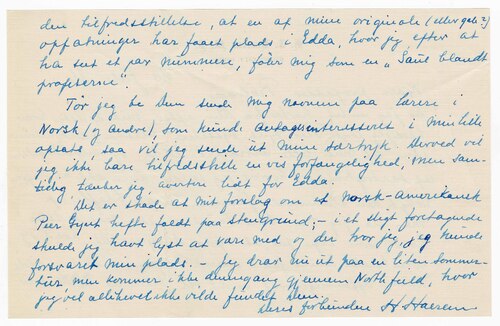 den tilfredsstillelse, at en af mine originale (eller gale?)
opfatninger har faaet plads i Edda, hvor jeg, efter at
ha set et par nummere, föler mig som en "Saul blandt
profeterne".
Tör jeg be Dem sende mig navnene paa lærere i
Norsk (og andre), som kunde antages interesseret i min lille
opsats, saa vil jeg sende ut mine særtryk. Derved vil
jeg ikke bare tilfredsstille en vis forfængelighed, men sam-
tidig, tænker jeg, avertere lidt for Edda.
Det er skade at mit forslag om et Norsk-Amerikansk
Peer Gynt hefte faldt paa stengrund; - i et sligt foretagende
skulde jeg havt lyst at være med og der tror jeg, jeg kunde
forsvaret min plads. - Jeg drar nu ut paa en liten sommer-
tur, men kommer ikke dennegang gjennem Northfield, hvor
jeg vel allikevel ikke vilde fundet Dem.
Deres forbundne H